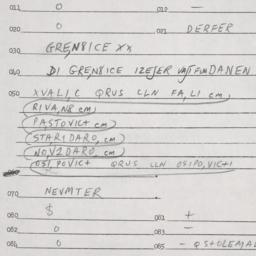 011 0 010 —
020 0 021 DERFER
030 GRENSICE XX
040 DI GRENSICE IZEJER DANEN
050 XVALIC QRUS CLN FA, LI cm
RIVA, NR cm
PASTOVIC+ cm
STARIDARO, cm
NOVZDARO, cm
OSIPOVIC+ QRUS CLN OSIPO, VIC+1
070 NEVMTER
080 $ 081 +
082 0 083 —
084 0 085 - QSTOLEMAL